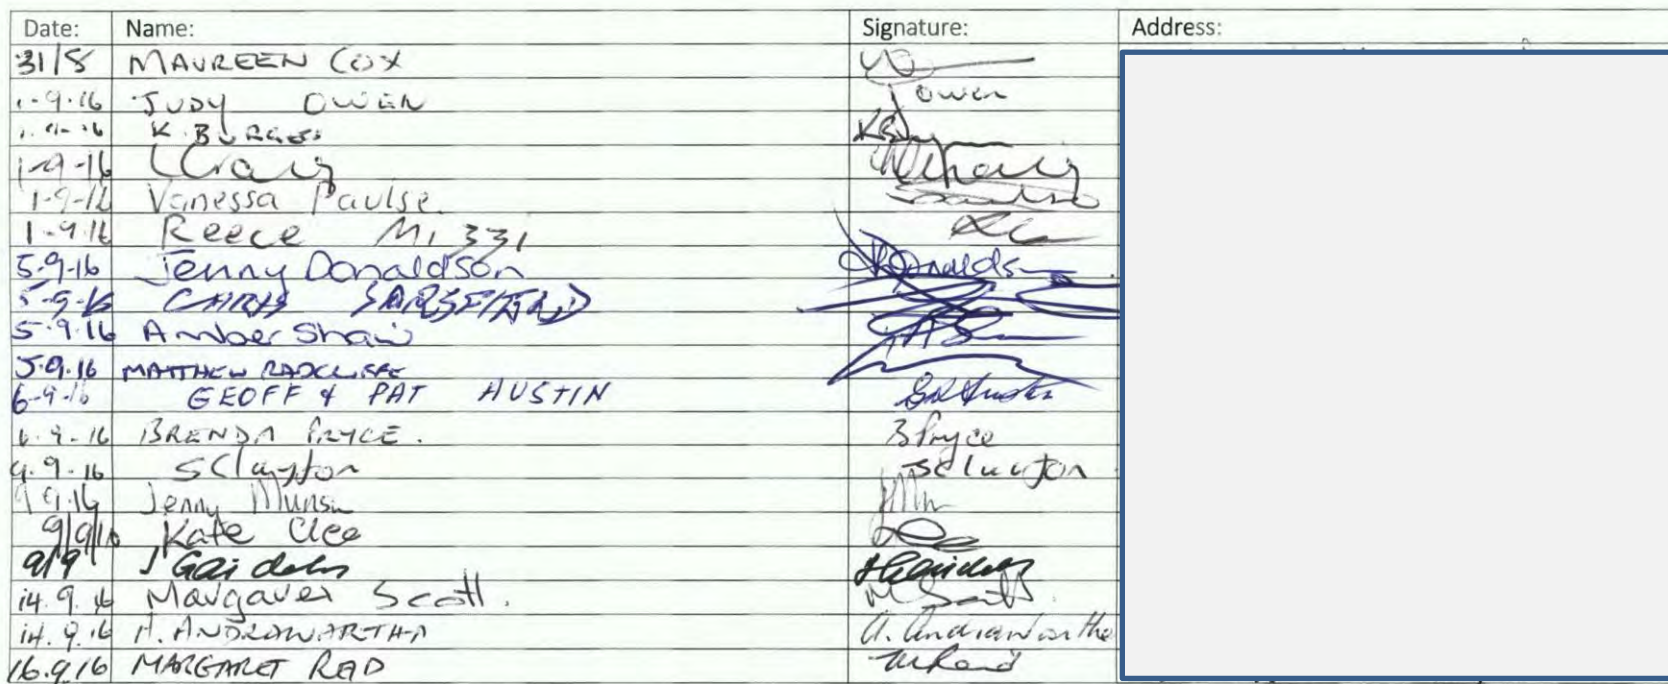 Date: Name: Signature: Address:
31/8 MAUREEN COX
1-9-16 JUDY OWEN JOwen
1-9-16 K. BURGESS
1-9-16 L Craig
1-9-16 Vanessa Paulse.
1-9-16 Reece
5-9-16 Jenny Donaldson Donaldson
5-9-16 CHRIS SARSFIELD
5.9.16 Amber Shaw
5.9.16 MATTHEW RADCLIFFE
6-9-16 GEOFF & PAT AUSTIN
6.9.16 BRENDA PRYCE. B Pryce
9.9.16 S Clayton S Clayton
9.9.16 Jenny
9/9/16 Kate Clee
9/9 J
14.9.16 Margaret Scott. M Scott.
14.9.16 A. ANDREWARTHA A. Andrewartha
16.9.16 MARGARET